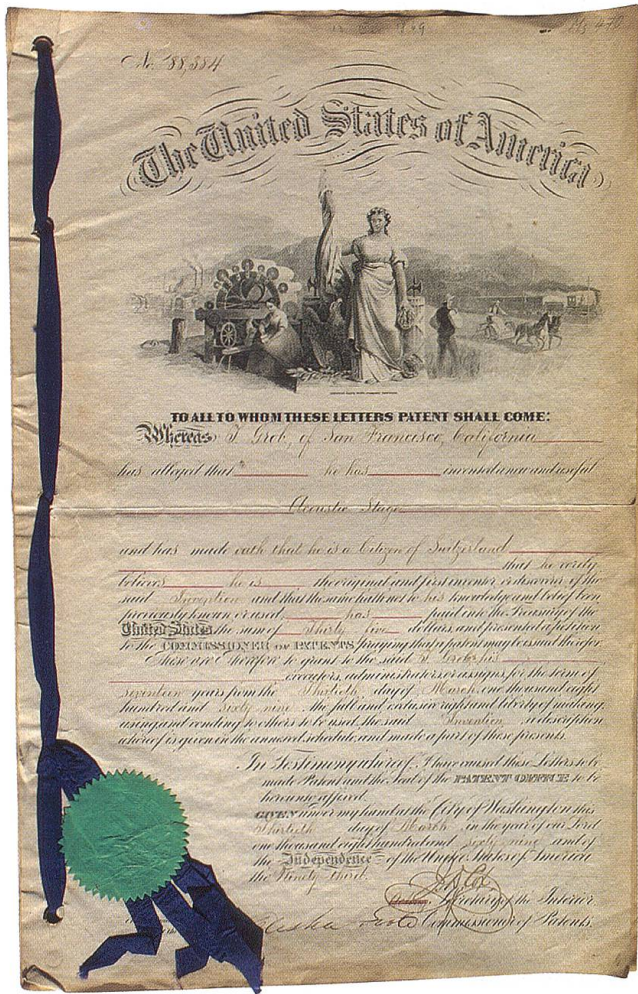 No. 88,584
The United States of America
TO ALL TO WHOM THESE LETTERS PATENT SHALL COME:
Whereas T. Grob, of San Francisco, California
has alleged that he has invented a new and useful
Acoustic Stage
and has made oath that he is a Citizen of Switzerland
that he verily
believes he is the original and first inventor or discoverer of the
said Invention and that the same hath not to his knowledge and belief been
previously known or used, has paid into the Treasury of the
United States the sum of Thirty five dollars and presented a petition
to the COMMISSIONER OF PATENTS, praying that a patent may be issued therefor
These are therefore to grant to the said T. Grob, his
executors, administrators or assigns for the term of
seventeen years from the Thirtieth day of March one thousand eight
hundred and sixty nine the full and exclusive right and liberty of making,
using and vending to others to be used, the said Invention a description
whereof is given in the annexed schedule, and made a part of these presents.
In Testimony whereof, I have caused these Letters to be
made Patent and the Seal of the PATENT OFFICE to be
hereunto affixed.
GIVEN under my hand at the City of Washington this
Thirtieth day of March in the year of our Lord
one thousand eight hundred and sixty nine and of
the Independence of the United States of America
the Ninety third.
J D Cox
Secretary of the Interior.
Elisha Foote Commissioner of Patents.